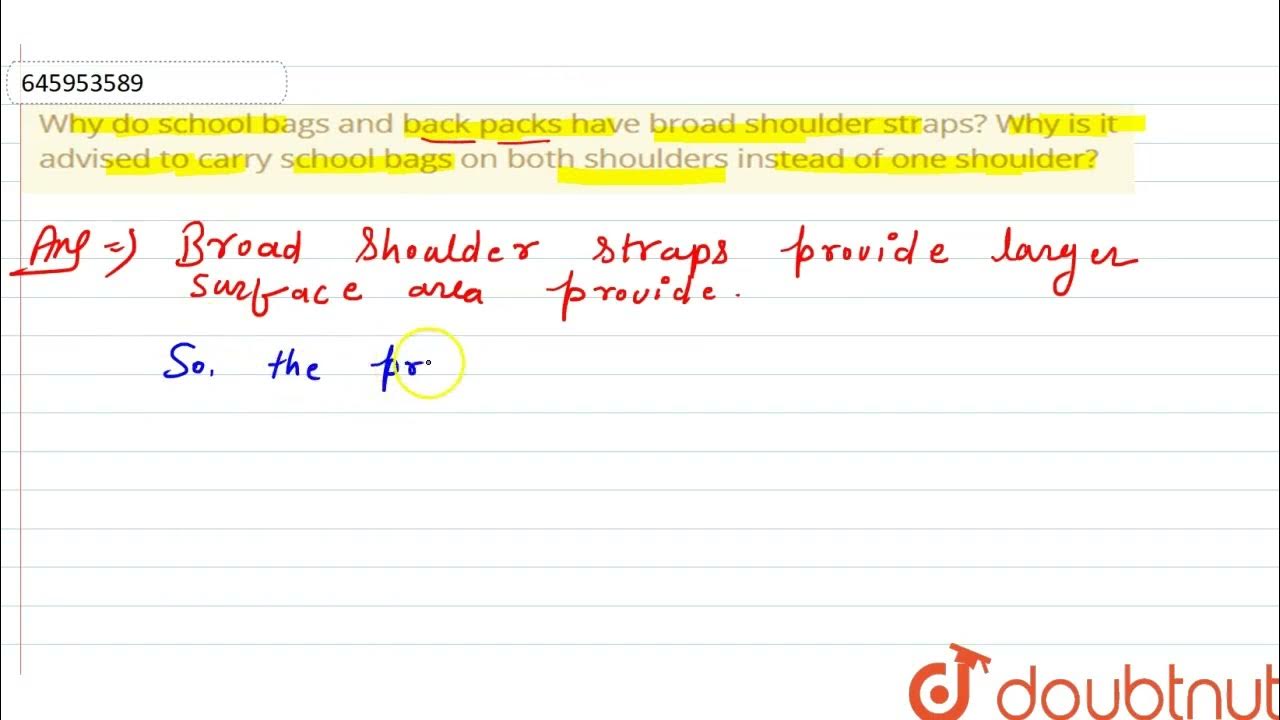 645953589
Why do school bags and back packs have broad shoulder straps? Why is it
advised to carry school bags on both shoulders instead of one shoulder?
Ans => Broad shoulder straps provide larger
surface area provide.
So, the pr
doubtnut